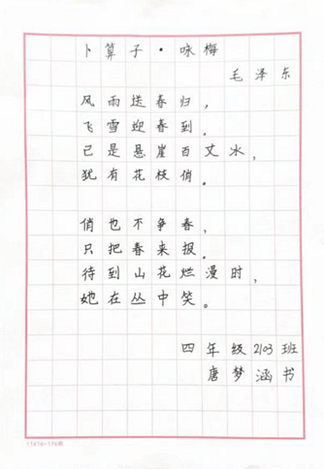 卜算子·咏梅
毛泽东
风雨送春归，
飞雪迎春到。
已是悬崖百丈冰，
犹有花枝俏。
俏也不争春，
只把春来报。
待到山花烂漫时，
她在丛中笑。
四年级2103班
唐梦涵书